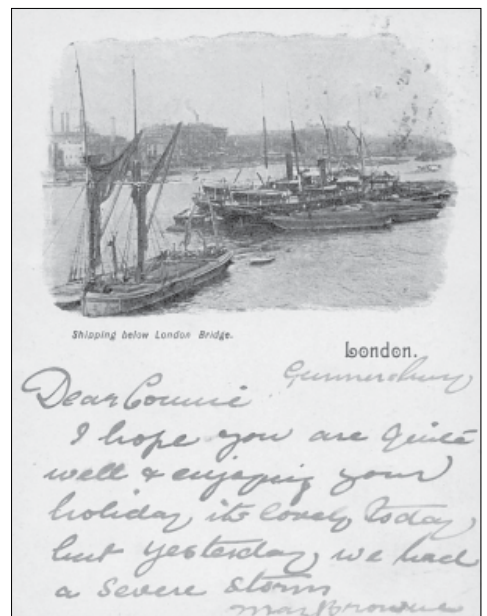 Shipping below London Bridge.
London.
Gunnersbury
Dear Connie
I hope you are quite
well & enjoying your
holiday, its lovely today,
but yesterday, we had
a severe storm
May Browne